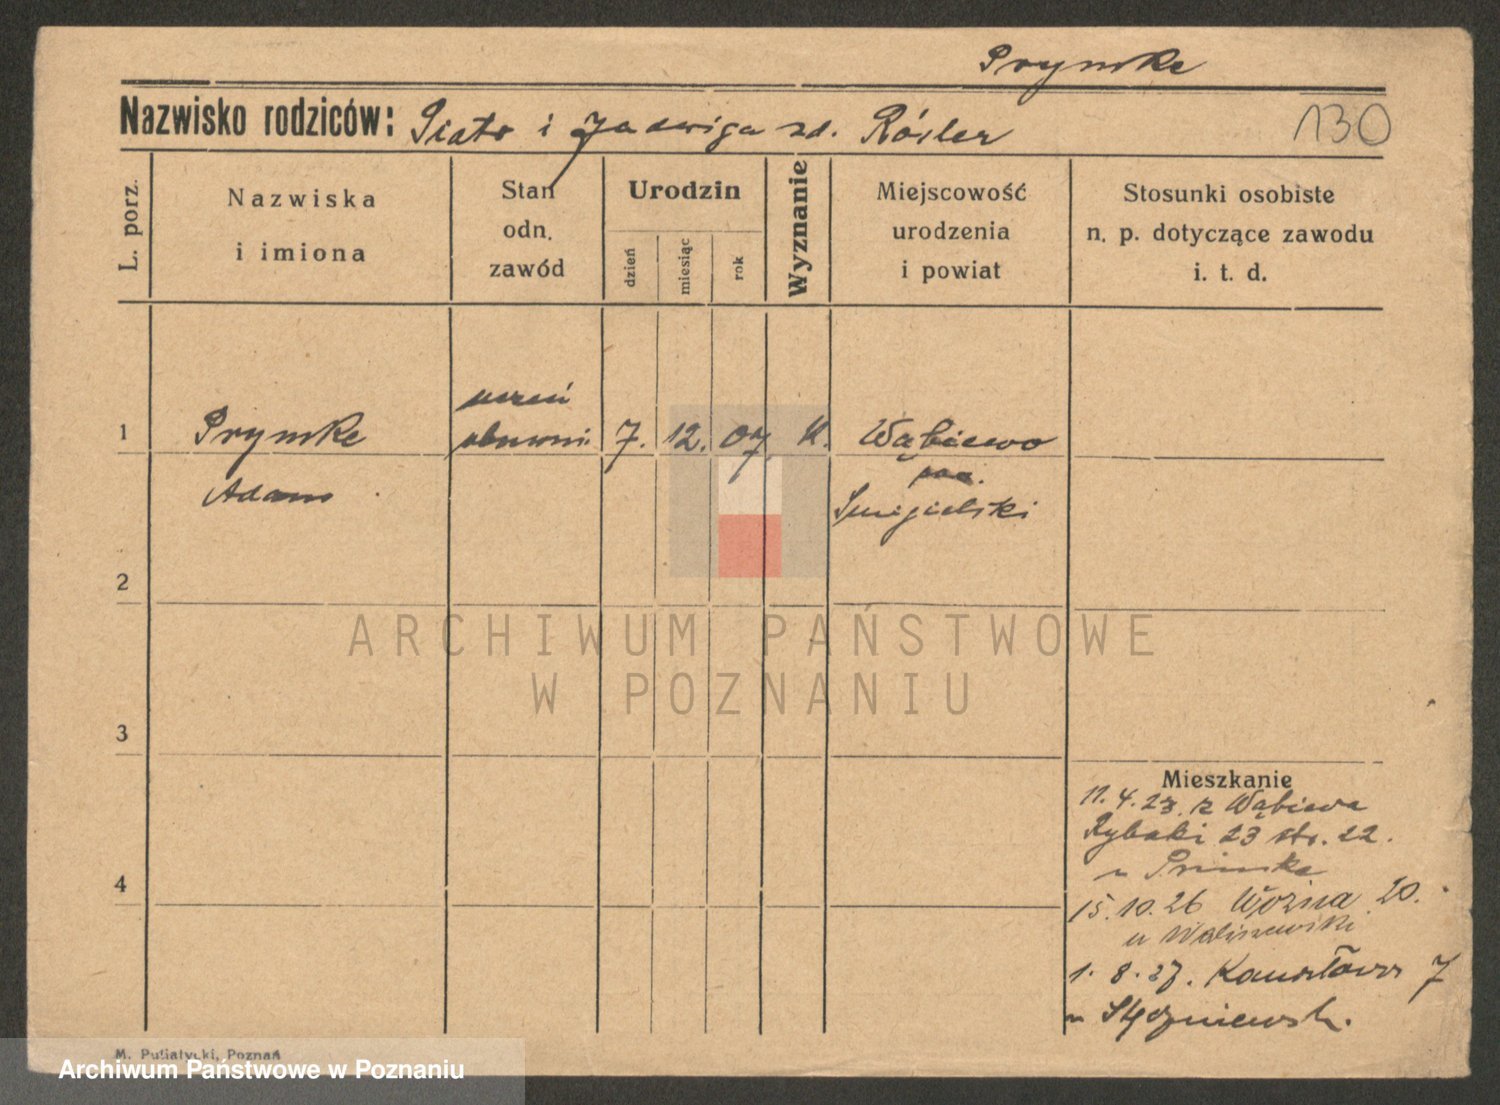 Prymke
Nazwisko rodziców: Piotr i Jadwiga zd. Rösler
130
L. porz.
Nazwiska
i imiona
Stan
odn.
zawód
Urodzin
dzień
miesiąc
rok
Wyznanie
Miejscowość
urodzenia
i powiat
Stosunki osobiste
n. p. dotyczące zawodu
i. t. d.
1
Prymke
Adam
uczeń
7. 12. 07 K.
Wąbiewo
pow.
Śmigielski
2
ARCHIWUM PAŃSTWOWE
W POZNANIU
3
Mieszkanie
11. 4. 23. z Wąbiewa
Rybaki 23 str. 22.
u Primke
4
15. 10. 26 Woźna 20.
u Waliszewski
1. 8. 27. 7
u
M. Putiatycki, Poznań
Archiwum Państwowe w Poznaniu